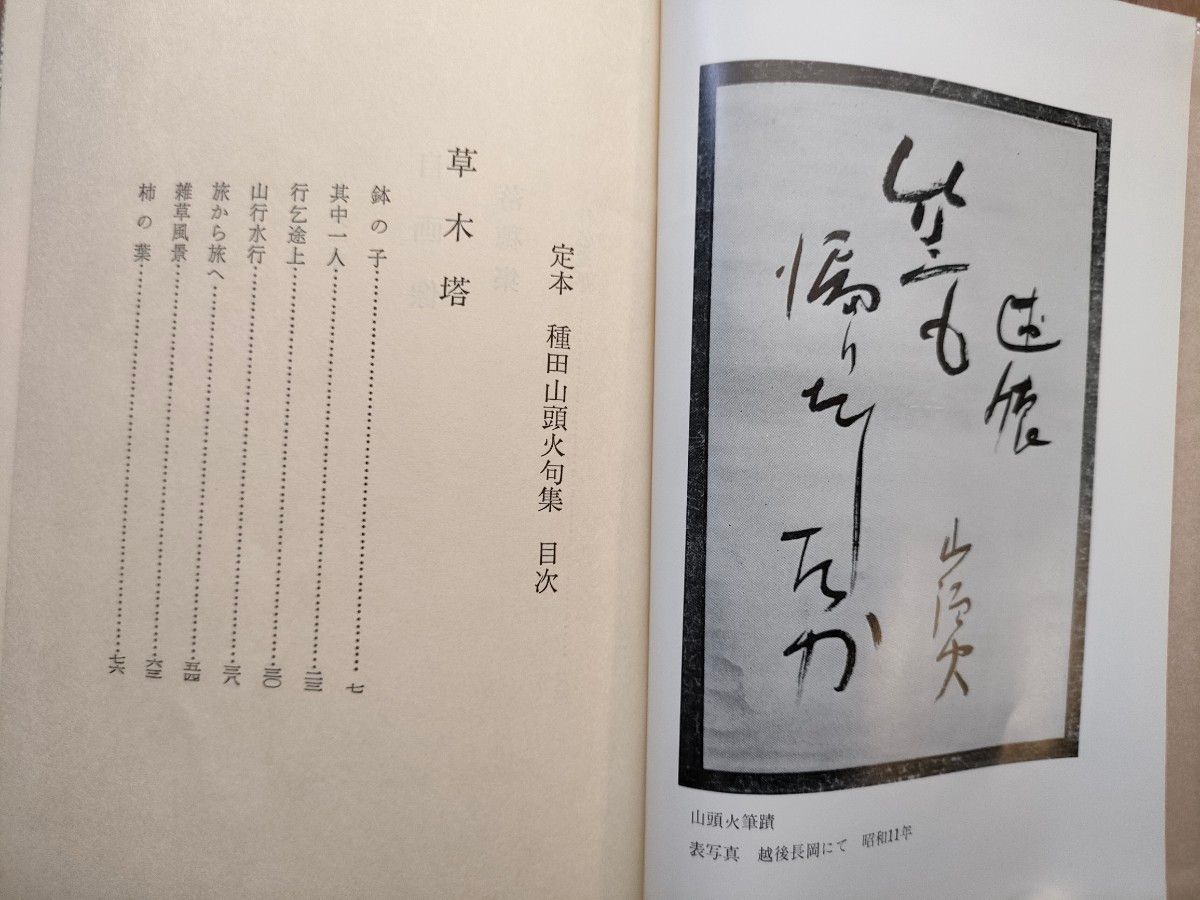 述懐
笠も
漏りだしたか
山頭火
山頭火筆蹟
表写真 越後長岡にて 昭和11年
定本 種田山頭火句集 目次
草木塔
鉢の子……………………七
其中一人……………………二三
行乞途上……………………三〇
山行水行……………………三八
旅から旅へ……………………五四
雜草風景……………………六三
柿の葉……………………七六